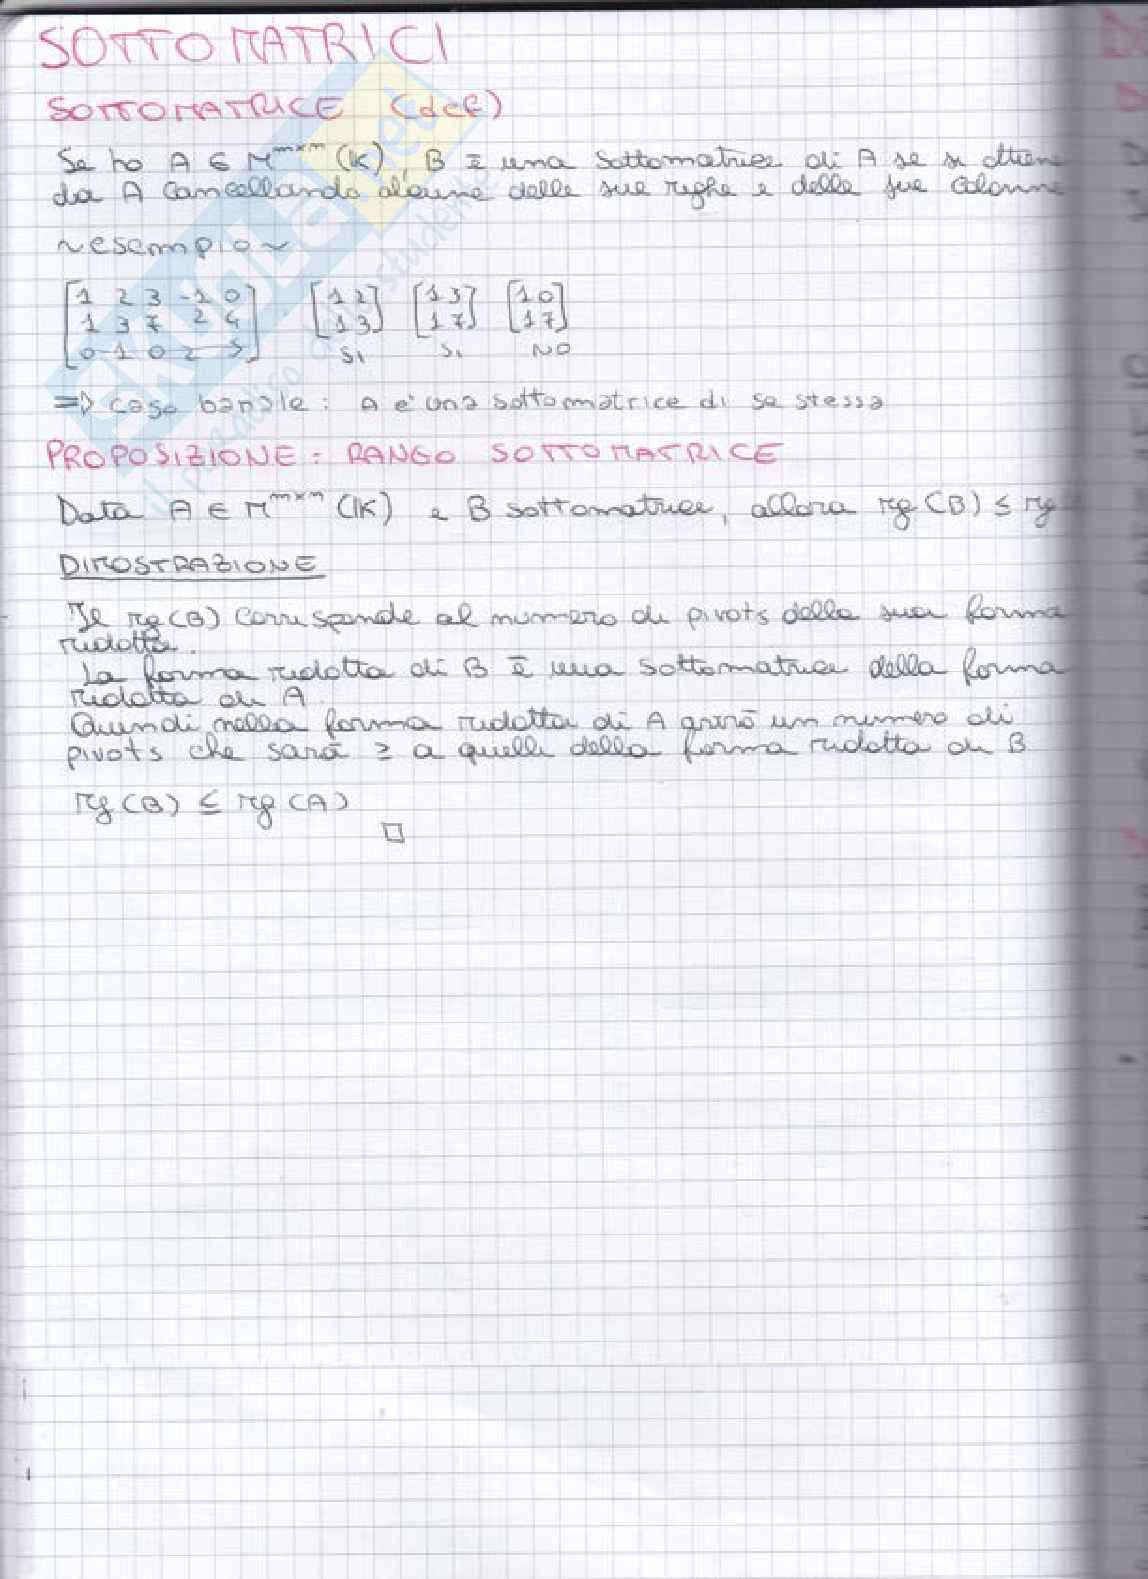 SOTTOMATRICI
SOTTOMATRICE (def)
Se ho A ∈ M^{m×n} (K), B è una sottomatrice di A se si ottiene
da A cancellando alcune delle sue righe e delle sue colonne
~ esempio ~
[1 2 3 -1 0] [1 2] [1 3] [1 0]
[1 3 7 2 4] [1 3] [1 7] [1 7]
[0 -1 0 2 5] SI SI NO
=> caso banale: A e' una sottomatrice di se stessa
PROPOSIZIONE: RANGO SOTTOMATRICE
Data A ∈ M^{m×n} (K) e B sottomatrice, allora rg (B) ≤ rg
DIMOSTRAZIONE
Il rg (B) corrisponde al numero di pivots della sua forma
ridotta.
La forma ridotta di B è una sottomatrice della forma
ridotta di A
Quindi nella forma ridotta di A avrò un numero di
pivots che sarà ≥ a quelli della forma ridotta di B
rg (B) ≤ rg (A)
□
SKUOLA.net
il paradiso dello studente